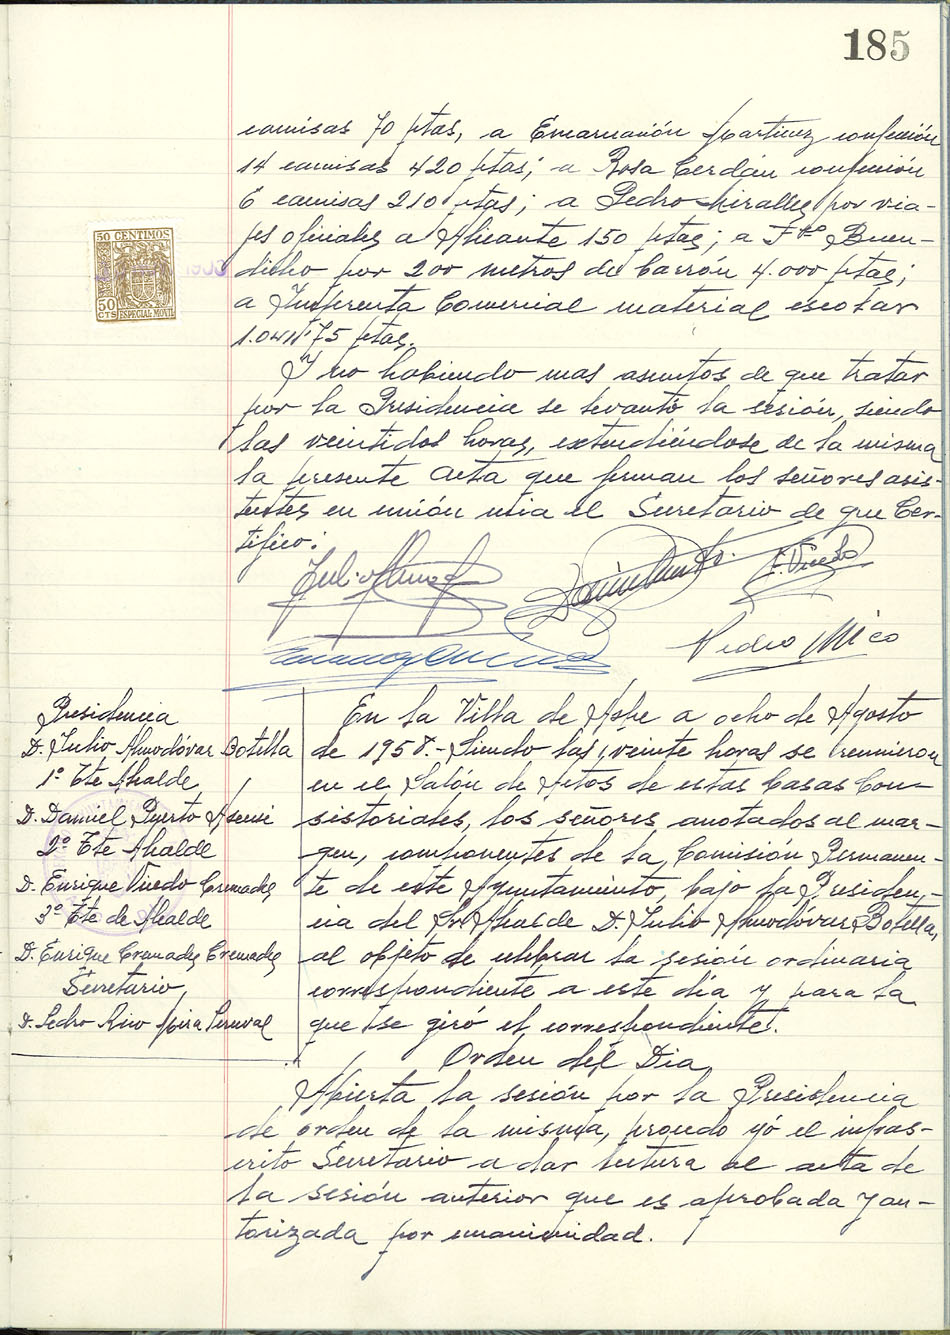 185
camisas 70 ptas, a Encarnación Martinez confección
14 camisas 420 ptas; a Rosa Cerdán confección
6 camisas 210 ptas; a Pedro Miralles por via-
jes oficiales a Alicante 150 ptas; a Fco Buen-
dicho por 200 metros de Carrón 4.000 ptas;
a Imprenta Comercial material escolar
ptas.
Y no habiendo mas asuntos de que tratar
por la Presidencia se levantó la sesión, siendo
las veintidos horas, extendiéndose de la misma
la presente acta que firman los señores asis-
tentes en unión mia el Secretario de que Cer-
tifico:
50 CENTIMOS
50
CTS ESPECIAL MOVIL
E. Vicedo
Pedro Rico
Presidencia
D. Julio Almodóvar Botella
1º Tte Alcalde
D. Daniel Puerto Asensi
2º Tte Alcalde
D. Enrique Vicedo Cremades
3º Tte de Alcalde
D. Enrique Cremades Cremades
Secretario
D. Pedro Rico
En la Villa de Aspe a ocho de Agosto
de 1958.- Siendo las veinte horas se reunieron
en el Salón de Actos de estas Casas Con-
sistoriales, los señores anotados al mar-
gen, componentes de la Comisión Permanen-
te de este Ayuntamiento, bajo la Presiden-
cia del Sr. Alcalde D. Julio Almodóvar Botella,
al objeto de celebrar la sesión ordinaria
correspondiente a este día y para la
que se giró el correspondiente.
Orden del Dia
Abierta la sesión por la Presidencia
de orden de la misma, procedo yó el infras-
crito Secretario a dar lectura al acta de
la sesión anterior que es aprobada y au-
torizada por unanimidad.